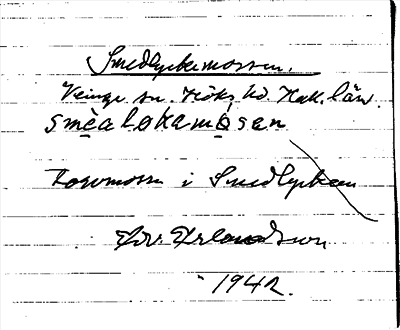 Smedlyckemossen.
Veinge sn. Höks hd. Hall. län.
smèaløkamósen
Torvmosse i Smedlyckan
Edv. Erlandsson
1942.